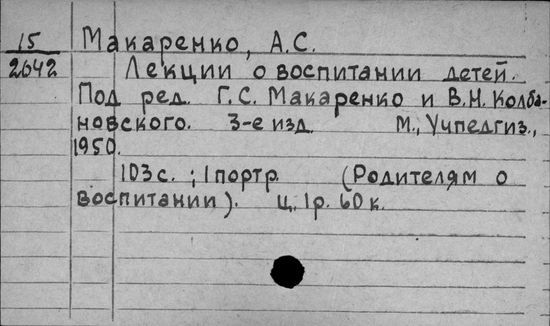 15 Макаренко, А.С.
2642 Лекции о воспитании детей.
Под ред. Г.С. Макаренко и В.Н. Колба-
новского. 3-е изд. М., Учпедгиз.,
1950.
103 с. ; 1 портр. (Родителям о
воспитании). Ц. 1 р. 60 к.